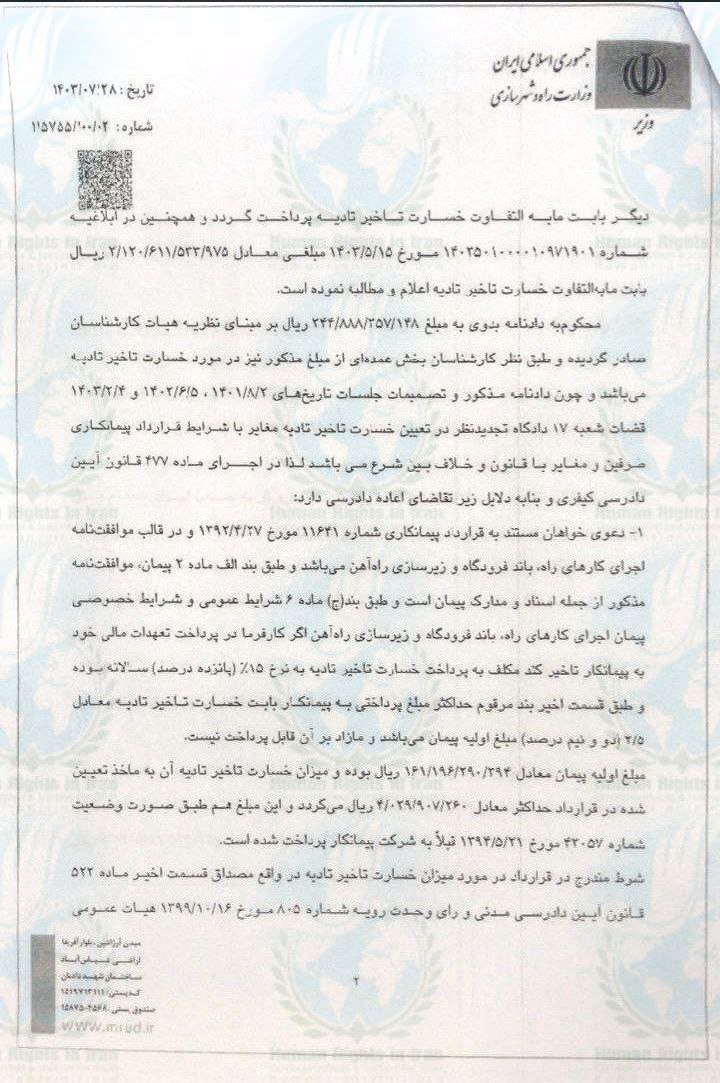 جمهوری اسلامی ایران
وزارت راه و شهرسازی
وزیر
تاریخ : ۱۴۰۳/۰۷/۲۸
شماره: ۱۱۵۷۵۵/۱۰۰/۰۲
دیگر بابت مابه التفاوت خسارت تاخیر تادیه پرداخت گردد و همچنین در ابلاغیه
شماره ۱۴۰۳۵۰۱۰۰۰۰۱۰۹۷۱۹۰۱ مورخ ۱۴۰۳/۵/۱۵ مبلغی معادل ۳/۱۲۰/۶۱۱/۵۳۳/۹۷۵ ریال
بابت مابه‌التفاوت خسارت تاخیر تادیه اعلام و مطالبه نموده است.
محکوم‌به دادنامه بدوی به مبلغ ۲۴۴/۸۸۸/۳۵۷/۱۴۸ ریال بر مبنای نظریه هیات کارشناسان
صادر گردیده و طبق نظر کارشناسان بخش عمده‌ای از مبلغ مذکور نیز در مورد خسارت تاخیر تادیه
می‌باشد و چون دادنامه مذکور و تصمیمات جلسات تاریخ‌های ۱۴۰۱/۸/۲ ، ۱۴۰۲/۶/۵ و ۱۴۰۳/۲/۴
قضات شعبه ۱۷ دادگاه تجدیدنظر در تعیین خسارت تاخیر تادیه مغایر با شرایط قرارداد پیمانکاری
طرفین و مغایر با قانون و خلاف بین شرع می باشد لذا در اجرای ماده ۴۷۷ قانون آیین
دادرسی کیفری و بنابه دلایل زیر تقاضای اعاده دادرسی دارد:
۱- دعوی خواهان مستند به قرارداد پیمانکاری شماره ۱۱۶۴۱ مورخ ۱۳۹۲/۴/۲۷ و در قالب موافقت‌نامه
اجرای کارهای راه، باند فرودگاه و زیرسازی راه‌آهن می‌باشد و طبق بند الف ماده ۲ پیمان، موافقت‌نامه
مذکور از جمله اسناد و مدارک پیمان است و طبق بند(ج) ماده ۶ شرایط عمومی و شرایط خصوصی
پیمان اجرای کارهای راه، باند فرودگاه و زیرسازی راه‌آهن اگر کارفرما در پرداخت تعهدات مالی خود
به پیمانکار تاخیر کند مکلف به پرداخت خسارت تاخیر تادیه به نرخ ۱۵٪ (پانزده درصد) سالانه بوده
و طبق قسمت اخیر بند مرقوم حداکثر مبلغ پرداختی به پیمانکار بابت خسارت تاخیر تادیه معادل
۲/۵ (دو و نیم درصد) مبلغ اولیه پیمان می‌باشد و مازاد بر آن قابل پرداخت نیست.
مبلغ اولیه پیمان معادل ۱۶۱/۱۹۶/۲۹۰/۳۹۴ ریال بوده و میزان خسارت تاخیر تادیه آن به ماخذ تعیین
شده در قرارداد حداکثر معادل ۴/۰۲۹/۹۰۷/۲۶۰ ریال می‌گردد و این مبلغ هم طبق صورت وضعیت
شماره ۴۳۰۵۷ مورخ ۱۳۹۴/۵/۲۱ قبلاً به شرکت پیمانکار پرداخت شده است.
شرط مندرج در قرارداد در مورد میزان خسارت تاخیر تادیه در واقع مصداق قسمت اخیر ماده ۵۲۲
قانون آیین دادرسی مدنی و رای وحدت رویه شماره ۸۰۵ مورخ ۱۳۹۹/۱۰/۱۶ هیات عمومی
میدان آرژانتین، بلوار آفریقا
اراضی عباس آباد
ساختمان شهید دادمان
کدپستی: ۱۵۱۹۷۱۳۱۱۱
صندوق پستی: ۴۵۶۸-۱۵۸۷۵
www.mrud.ir
۲
Human Rights in Iran